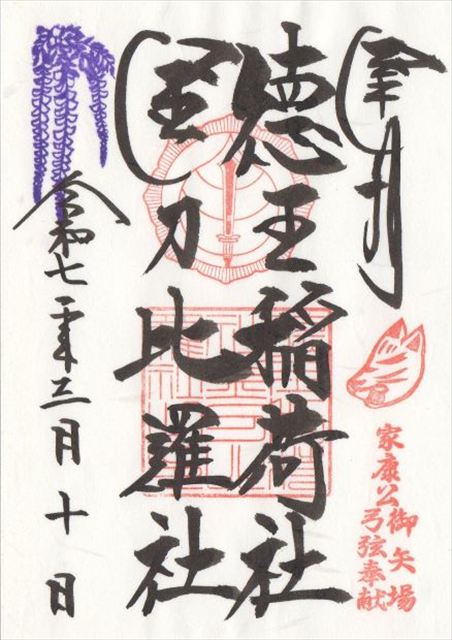 奉拝
家康公御矢場
弓弦奉献
徳王稲荷社
金刀比羅社
令和七年三月十日